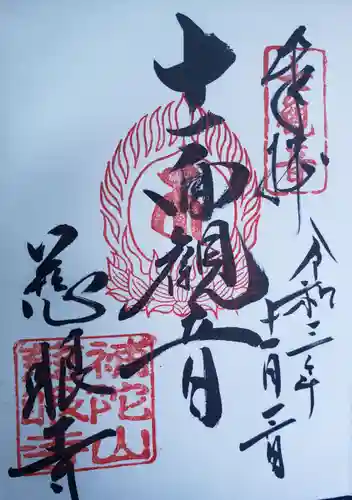 奉拝
令和三年
十一月
十一面観音
慈眼寺
補陀山